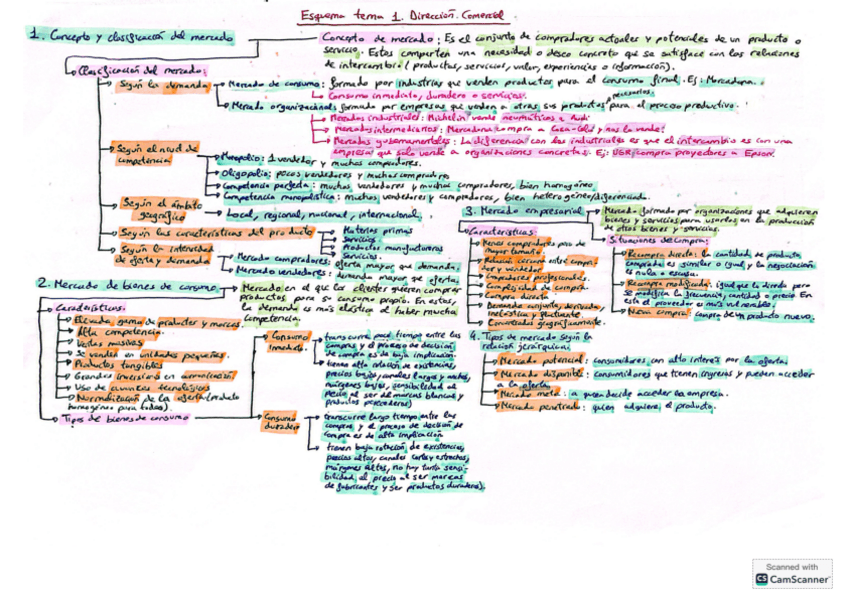 Esquema tema 1. Dirección Comercial
1. Concepto y clasificación del mercado
Concepto de mercado: Es el conjunto de compradores actuales y potenciales de un producto o
servicio. Estos comparten una necesidad o deseo concreto que se satisface con las relaciones
de intercambio (productos, servicios, valor, experiencias o información).
Clasificación del mercado:
Según la demanda
Mercado de consumo: formado por industrias que venden productos para el consumo final. Ej: Mercadona.
Consumo inmediato, duradero o servicios.
necesarios
Mercado organizacional: formado por empresas que venden a otras sus productos para el proceso productivo.
Mercados industriales: Michelin vende neumáticos a Audi
Mercados intermediarios: Mercadona compra a Coca-Cola y nos la vende
Mercados gubernamentales: La diferencia con los industriales es que el intercambio es con una
empresa que solo vende a organizaciones concretas. Ej: UGR compra proyectores a Epson.
Según el nivel de
competencia
Monopolio: 1 vendedor y muchos compradores.
Oligopolio: pocos vendedores y muchos compradores
Competencia perfecta: muchos vendedores y muchos compradores, bien homogéneo
Competencia monopolística: muchos vendedores y compradores, bien heterogéneo/diferenciado.
Según el ámbito
geográfico
Local, regional, nacional, internacional.
Según las características del producto
Materias primas
Servicios
Productos manufactureros
Servicios.
Según la intensidad
de oferta y demanda
Mercado compradores: oferta mayor que demanda.
Mercado vendedores: demanda mayor que oferta.
2. Mercado de bienes de consumo
Mercado en el que los clientes quieren comprar
productos para su consumo propio. En estos,
la demanda es más elástica al haber mucha
competencia.
Características:
Elevada gama de productos y marcas
Alta competencia.
Ventas masivas
Se venden en unidades pequeñas.
Productos tangibles
Grandes inversiones en comunicación
Uso de avances tecnológicos
Normalización de la oferta (producto
homogéneo para todos).
Tipos de bienes de consumo
Consumo
inmediato
transcurre poco tiempo entre las
compras y el proceso de decisión
de compra es de baja implicación
tienen alta rotación de existencias,
precios bajos, canales largos y
márgenes bajos, sensibilidad al
precio al ser de marcas blancas y
productos perecederos)
Consumo
duradero
transcurre largo tiempo entre las
compras y el proceso de decisión de
compra es de alta implicación
tienen baja rotación de existencias,
precios altos, canales cortos y estrechos,
márgenes altos, no hay tanta sensi-
bilidad al precio al ser marcas
de fabricantes y ser productos duraderos).
3. Mercado empresarial
Mercado formado por organizaciones que adquieren
bienes y servicios para usarlos en la producción
de otros bienes y servicios.
Características:
Menos compradores pero de
mayor tamaño
Relación cercana entre compra-
dor y vendedor
Compradores profesionales
Complejidad de compra
Compra directa
Demanda conjunta, derivada,
inelástica y fluctuante
Concentrados geográficamente.
Situaciones de compra:
Recompra directa: la cantidad de producto
comprada es similar o igual y la negociación
es nula o escasa.
Recompra modificada: igual que la directa pero
se modifica la frecuencia, cantidad o precio. En
esta el proveedor es más vulnerable.
Nueva compra: compra de un producto nuevo.
4. Tipos de mercado según la
relación jerárquica:
Mercado potencial: consumidores con alto interés por la oferta
Mercado disponible: consumidores que tienen ingresos y pueden acceder
a la oferta
Mercado meta: a quien decide acceder la empresa.
Mercado penetrado: quien adquiere el producto.
Scanned with
CS CamScanner